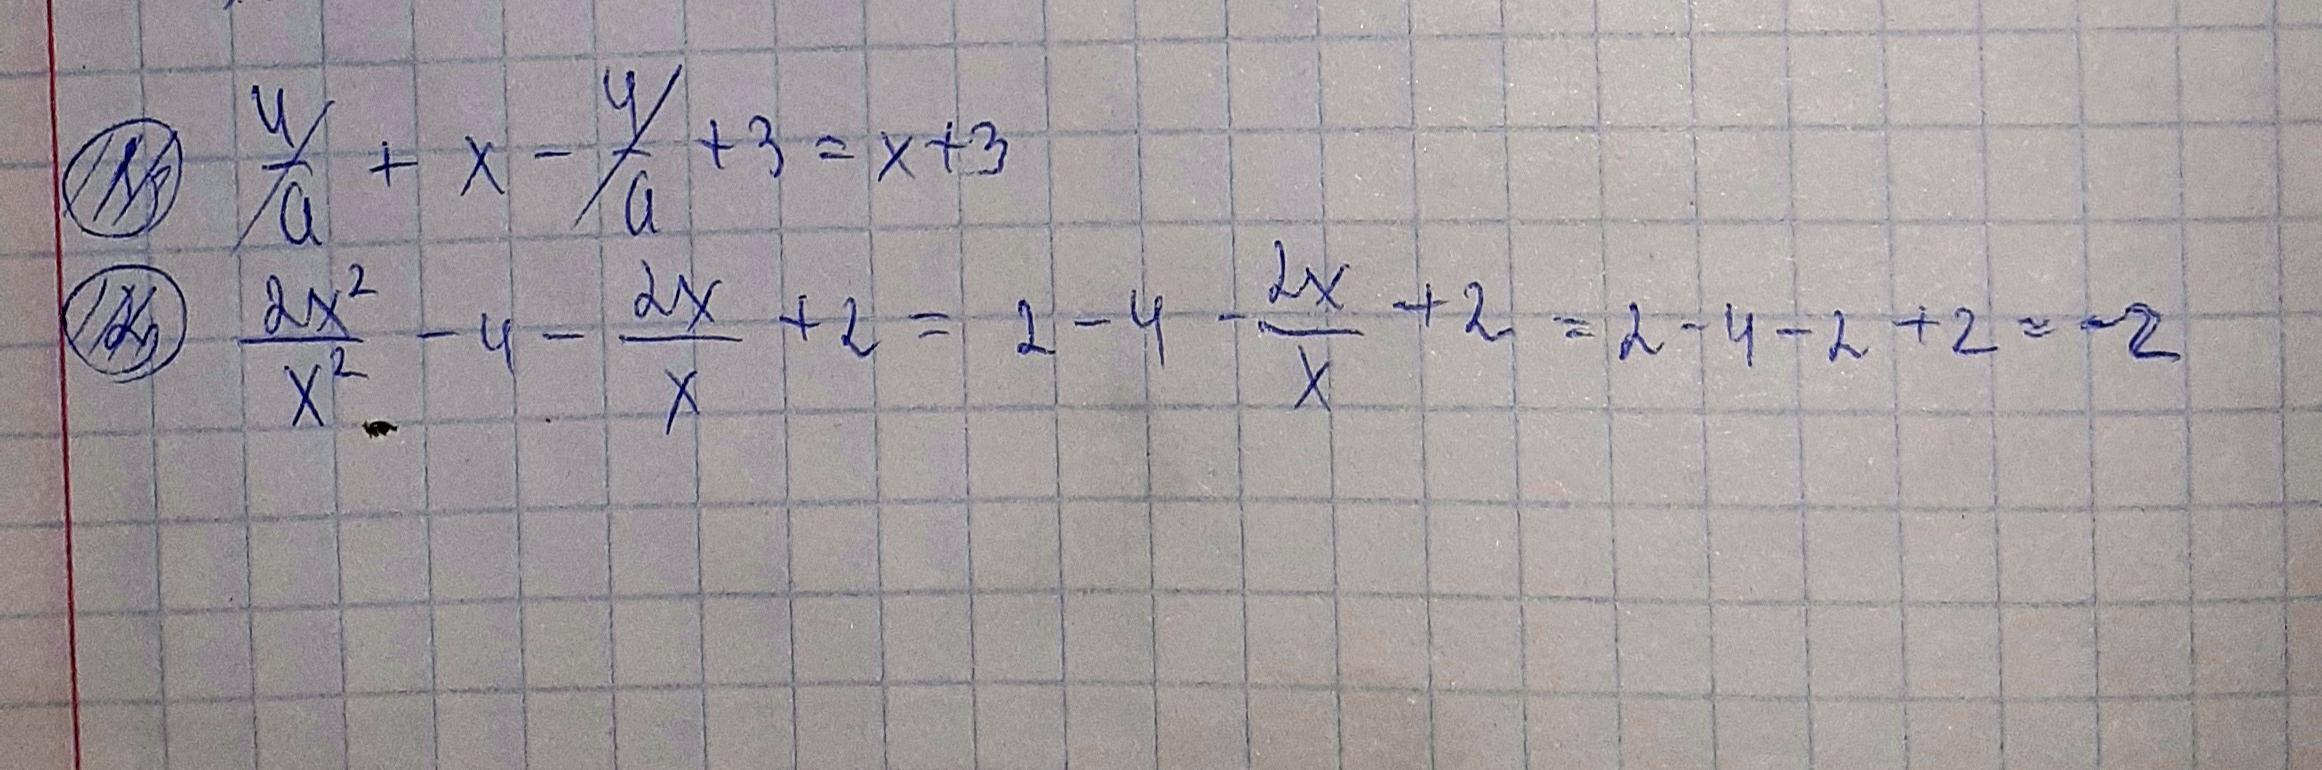 1) y/a + x - y/a + 3 = x + 3
2) 2x²/x² - 4 - 2x/x + 2 = 2 - 4 - 2x/x + 2 = 2 - 4 - 2 + 2 = -2